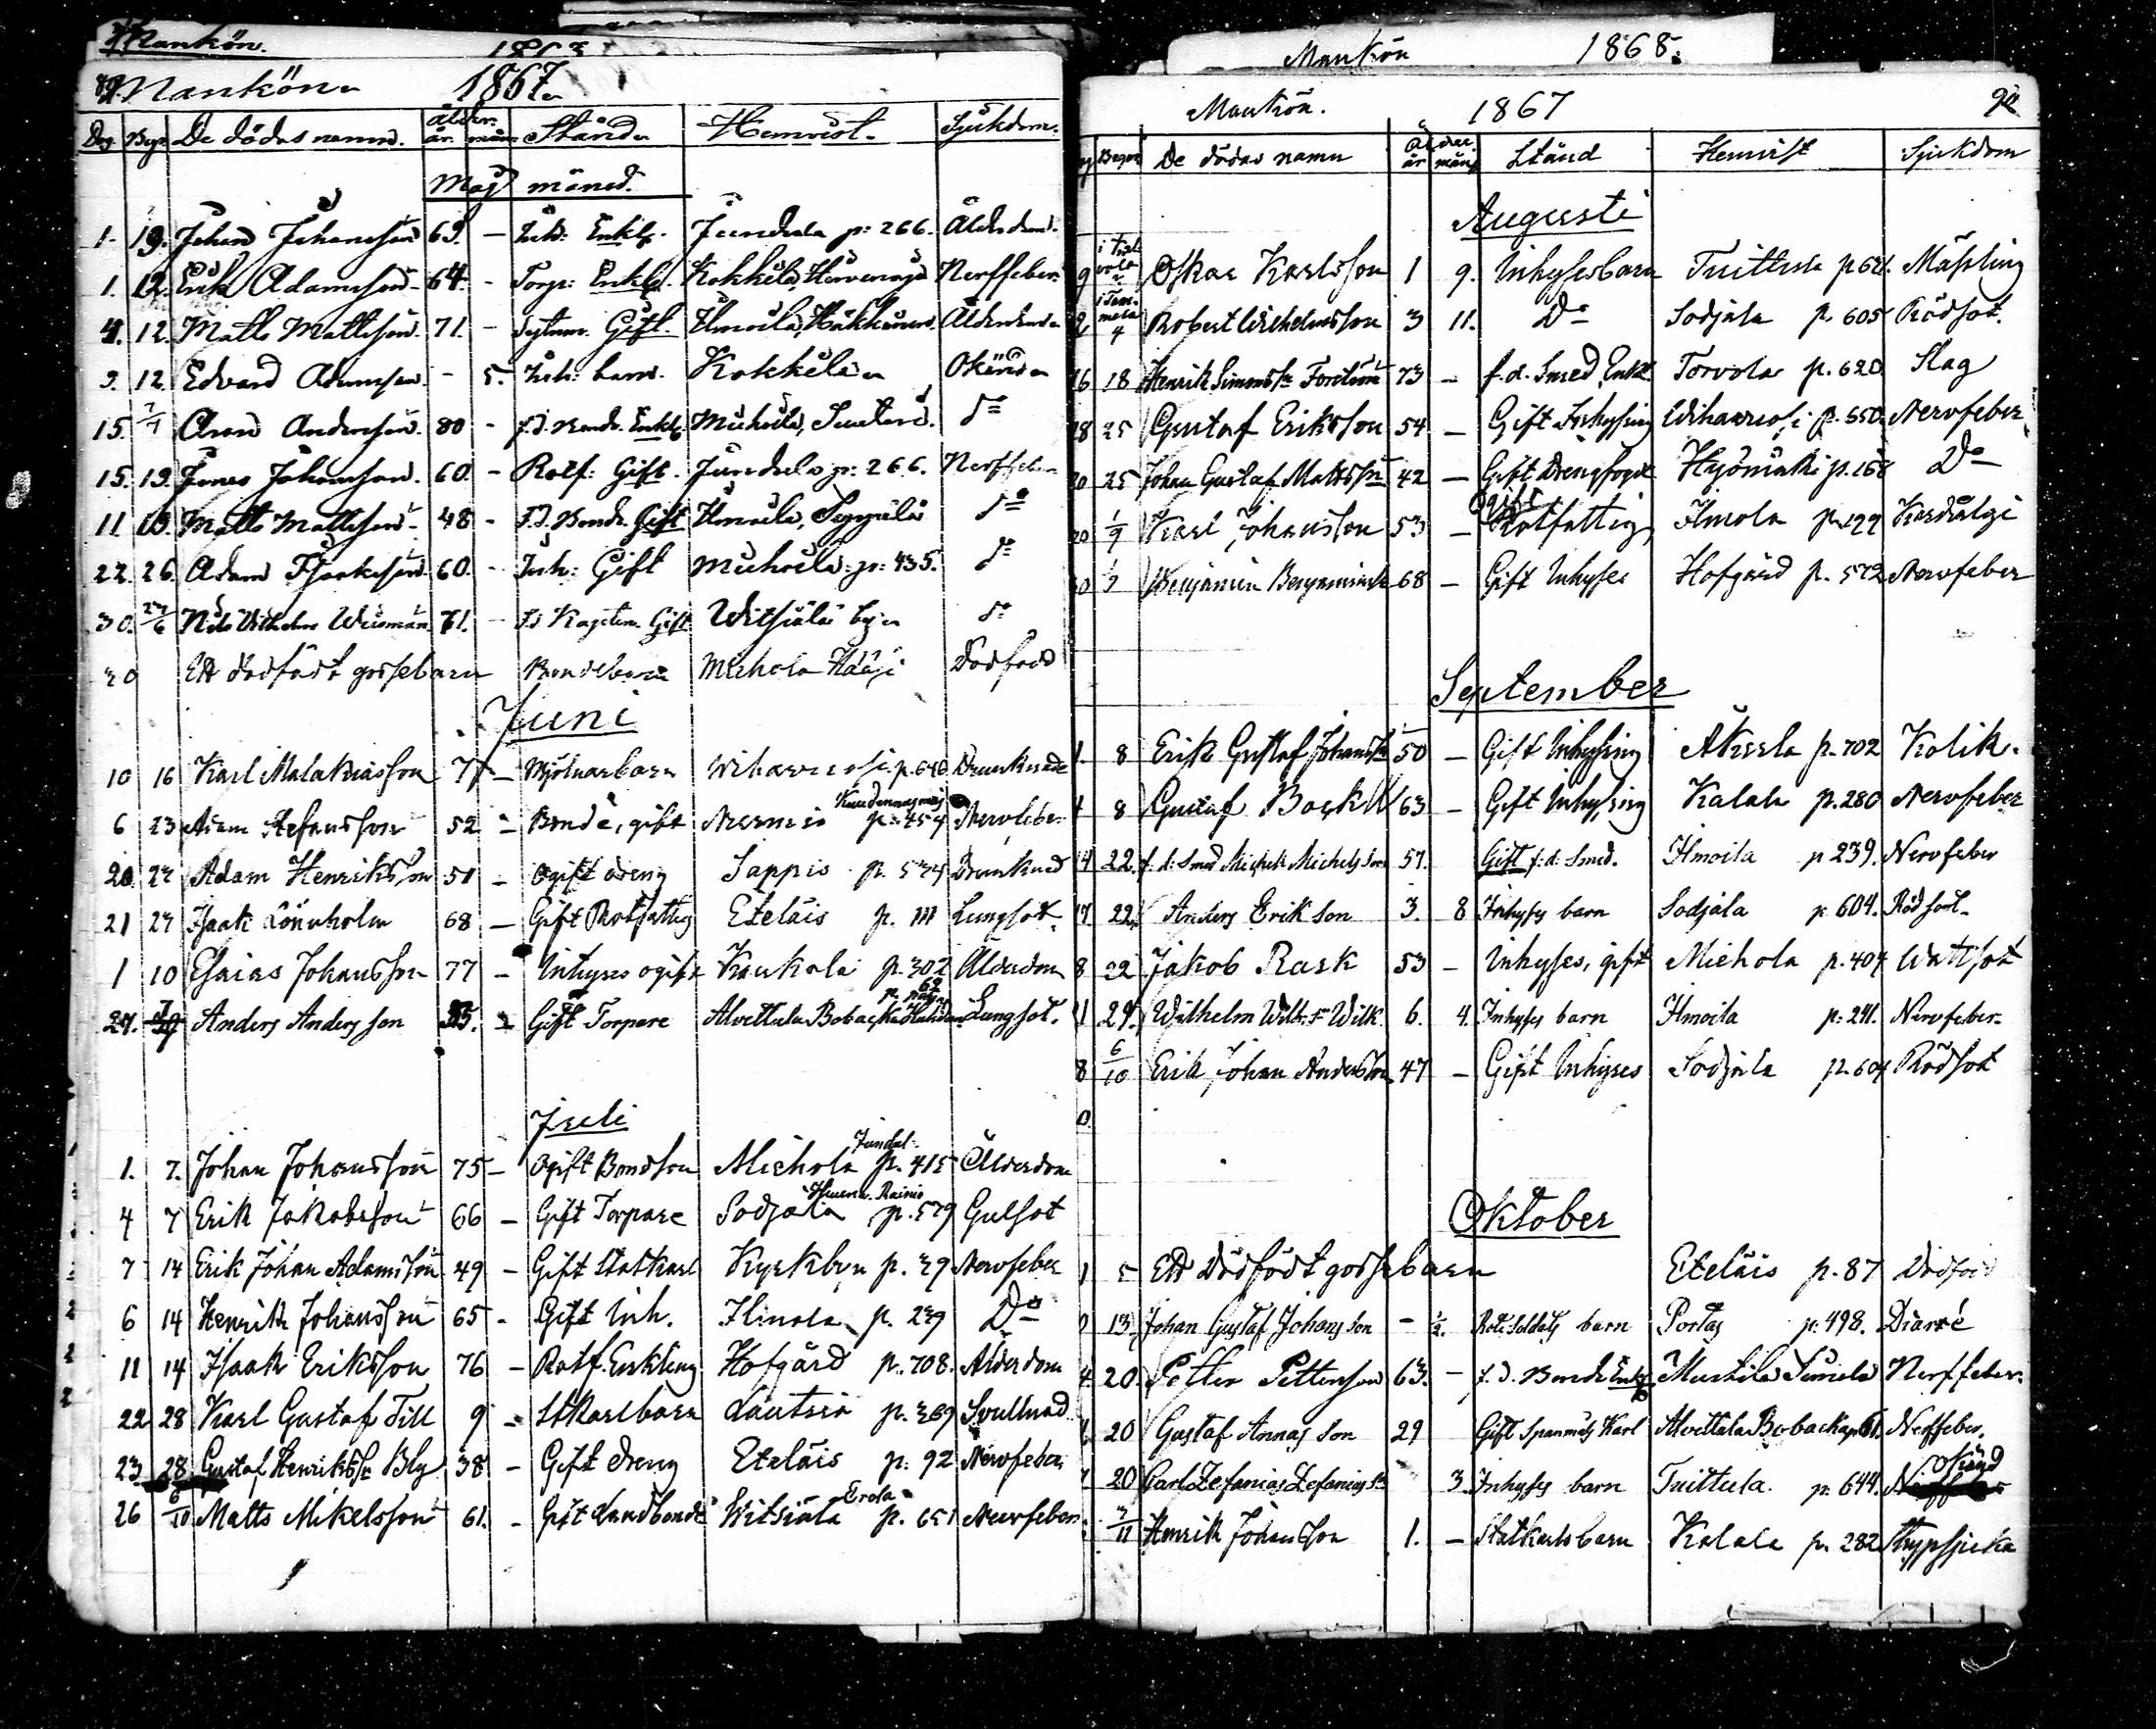 Mankön.
Mankön. 1867.
Dag Begr. De dödas namn. Ålder. år. mån. Stånd. Hemvist. Sjukdom.
Maj månad.
1. 19. Johan Johansson 69. - Inh: Enkl. Jundula p: 266. Ålderdom.
1. 12. Erik Adamsson 64. - Torp: Enkl. Kokkila, Nerffeber.
4. 12. Matts Mattsson. 71. - Gift. Ilmoila, Häkkinen. Ålderdom
9. 12. Edvard Adamsson. - 5. Inh: barn. Kokkila Okänd
15. Aron Andersson. 80 - f.d. Bonde. Enkl. Michoila, do
15. 19. Jonas Johansson. 60. - Rotf: Gift. Jundula p: 266. Nerffeber
11. 19. Matts Mattsson. 48 - f.d. Bonde. Gift Ilmoila, Seppälä do
22. 26. Adam 60. - Inh: Gift Michoila: p: 435. do
30. Nils Vilhelm 71. - f.d. Kapten. Gift Witsiälä by do
30 Ett dödfödt gossebarn Bondebarn Michola Dödfödd
Juni
10 16 Karl Malakiasson 7 - Mjölnarbarn Wihavuosi p. 640 Drunknade
6 23 Adam Stefansson 52 - Bonde, gift p. 454 Nervfeber
20 27 Adam Henriksson 51 - Ogift dreng Sappis p. 574 Drunknad
21 27 Isaak Lönnholm 68 - Gift Rotfattig Eteläis p. 111 Lungsot.
1 10 Esaias Johansson 77 - Inhyses ogift Kaukola p. 302 Ålderdom
27. Anders Andersson - Gift Torpare Alvettula Bobacka Lungsot.
Juli
1. 7. Johan Johansson 75 - Ogift Bondson Michola p. 415 Ålderdom
4 7 Erik Jakobsson 66 - Gift Torpare Sodjala p. 579 Gulsot
7 14 Erik Johan Adamsson 49 - Gift Statkarl Kyrkbyn p. 29 Nervfeber
6 14 Henrik Johansson 65 - Gift Inh. Ilmola p. 239 Do
11 14 Isaak Eriksson 76 - Rotf. Enkling Hofgård p. 708. Ålderdom
22 28 Karl Gustaf Till 9 - Stkarlbarn Lautsia p. 369 Svullnad
23 28 Gustaf Henrikss. Bly 38 - Gift dreng Eteläis p. 92 Nervfeber
26 6/10 Matts Mikelsson 61. - Gift Landbonde Witsiälä Erola p. 651 Nervfeber
Mankön 1868.
Mankön. 1867
Begr. De dödas namn Ålder. år mån Stånd Hemvist Sjukdom
Augusti
9 Oskar Karlsson 1 9. Inhysesbarn Tuittula Mässling
4 Robert Wilhelmsson 3 11. Do Sodjala p. 605 Rödsot.
16 18 Henrik Simonss. 73 - f.d. Smed, Enkl. Torvola p. 620 Slag
18 25 Gustaf Eriksson 54 - Gift Inhysing Wihavuosi p. 650 Nervfeber
20 25 Johan Gustaf Mattsson 42 - Gift Drengfogde p. 168 Do
20 1/9 Karl Johansson 53 - Ogift Rotfattig Ilmola p. 199
30 Benjamin Benjaminss. 68 - Gift Inhyses Hofgård p. 572 Nervfeber
September
1. 8 Erik Gustaf Johanss. 50 - Gift Inhysing p. 702 Kolik.
8 Gustaf Bock 63 - Gift Inhysing Kalala p. 280 Nervfeber
14 22. f.d. Smed Michel Michelsson 57. Gift f.d. Smed. Ilmoila p 239. Nervfeber
17 22. Anders Erikson 3. 8 Inhyses barn Sodjala p. 604. Rödsot.
8 22 Jakob Rask 53 - Inhyses, gift Michola p. 407 Wattsot
29. Wilhelm Wilk 6. 4. Inhyses barn Ilmoila p. 241. Nervfeber.
8 6/10 Erik Johan Andersson 47 - Gift Inhyses Sodjala p. 604 Rödsot
Oktober
1 5 Ett Dödfödt gossebarn Eteläis p. 87 Dödfödd
13 Johan Gustaf Johansson - 1/2. Rote Soldats barn Portas p. 498. Diarré
20. Petter Petterson 63. - f.d. Bonde Enkl. Nerffeber.
20 Gustaf Annasson 29 Gift Spanmåls Karl Alvettula Bobacka Nerffeber.
20 Carl Zefanias Zefanias 3 Inhyses barn Tuittula. p. 644. Okänd
7/11 Henrik Johansson 1. - Statkarlsbarn Kalala p. 282 Strypsjuka